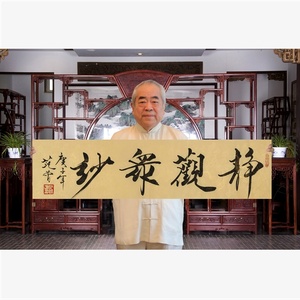 静觀衆妙
庚子年
范曾